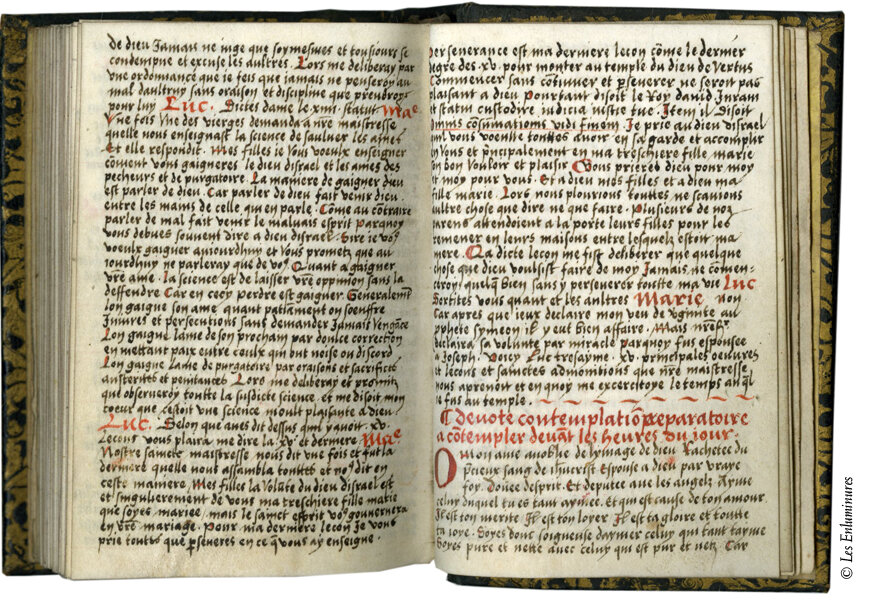 de dieu Jamais ne iuge que soymesmes et tousiours se
condempne et excuse les aultres. Lors me deliberay par
vne ordonnance que ie feis que jamais ne penseroy au
mal daultruy sans oraison et discipline que prendroy
pour luy Luc. Dictes dame le xiiii. statut Mae
Vne fois vne des vierges demanda a nre maistresse
quelle nous enseignast la science de sauluer les ames
Et elle respondit. Mes filles ie vous voeulx enseigner
coment vous gaigneres le dieu disrael et les ames des
pecheurs et de purgatoire. La maniere de gaigner dieu
est parler de dieu. Car parler de dieu fait venir dieu.
entre les mains de celle qui en parle. Come au cotraire
parler de mal fait venir le maluais esprit parquoy
vous debues souuent dire a dieu disrael. Sire ie vos
voeulx gaigner auiourdhuy et vous prometz que au
iourdhuy ne parleray que de vos. Quant a gaigner
vre ame. la science est de laisser vre oppinion sans la
deffendre Car en cecy perdre est gaigner. Generalement
lon gaigne son ame quant patiament on soeuffre
Iniures et persecutions sans demander Jamais vengance
Lon gaigne lame de son prochain par doulce correction
en mettant paix entre ceulx qui ont noise ou discord
Lon gaigne lame de purgatoire par oraisons et sacrifices
austerites et penitances. Lors me deliberay et promitz
que obserueroy toutte la susdicte science. et me disoit mon
coeur que cestoit vne science moult plaisante a dieu
Luc. Selon que aues dit dessus quil y auoit .xv.
Lecons vous plaira me dire la .xv. et derniere Mae
Nostre saincte maistresse nous dit vne fois et fut la
derniere quelle nous assembla touttes et nos dit en
ceste maniere. Mes filles la volute du dieu disrael est
et singulierement de vous ma treschiere fille marie
que soyes mariee. mais le sainct esprit vos gouuernera
en vre mariage. Pour ma derniere lecon Je vous
prie touttes que pseueres en ce q vous ay enseigne.
perseuerance est ma derniere lecon come le dernier
degre des .xv. pour monter au temple du dieu de vertus
Commencer sans cotinuer et pseuerer ne seroit pas
plaisant a dieu Pourtant disoit le Roy dauid Iuraui
et statui custodire iudicia iusticie tue. Item il disoit
omnis consumationis vidi finem. Je prie au dieu disrael
quil vous voeulle touttes auoir en sa garde et acomplir
en vous et principalement en ma treschiere fille marie
son bon vouloir et plaisir Vous prieres dieu pour moy
et moy pour vous. Et a dieu mes filles et a dieu ma
fille marie. Lors nous plourions touttes ne scauions
aultre chose que dire ne que faire. Plusieurs de noz
parens attendoient a la porte leurs filles pour les
remener en leurs maisons entre lesquelz estoit ma
mere. La dicte lecon me fist deliberer que quelque
chose que dieu voulsist faire de moy Jamais ne comen-
ceroy quelq bien sans y perseuerer toutte ma vie Luc
Sortites vous quant et les aultres Marie non
Car apres que ieux declaire mon veu de virginite au
pphete symeon il y eut bien affaire. Mais
declaira sa volunte par miracle parquoy fus espousee
a Joseph. Voicy Luc tresayme .xv. principales oeuures
et lecons et sainctes admonitions que nre maistresse
nous aprenoit et en quoy me excercitoye le temps
ie fus au temple.
Deuote contemplation preparatoire
a cotempler deuat les heures du iour.
O mon ame anoblie de lymage de dieu Rachetee du
pcieux sang de ihucrist Espouse a dieu par vraye
foy. Douee desprit. Et deputee auec les angelz Ayme
celuy duquel tu es tant aymee. Et qui est cause de ton amour.
Il est ton merite Il est ton loyer Il est ta gloire et toutte
ta ioye. Soyes donc soigneuse daymer celuy qui tant tayme
Soyes pure et nette auec celuy qui est pur et netz Car
© Les Enluminures